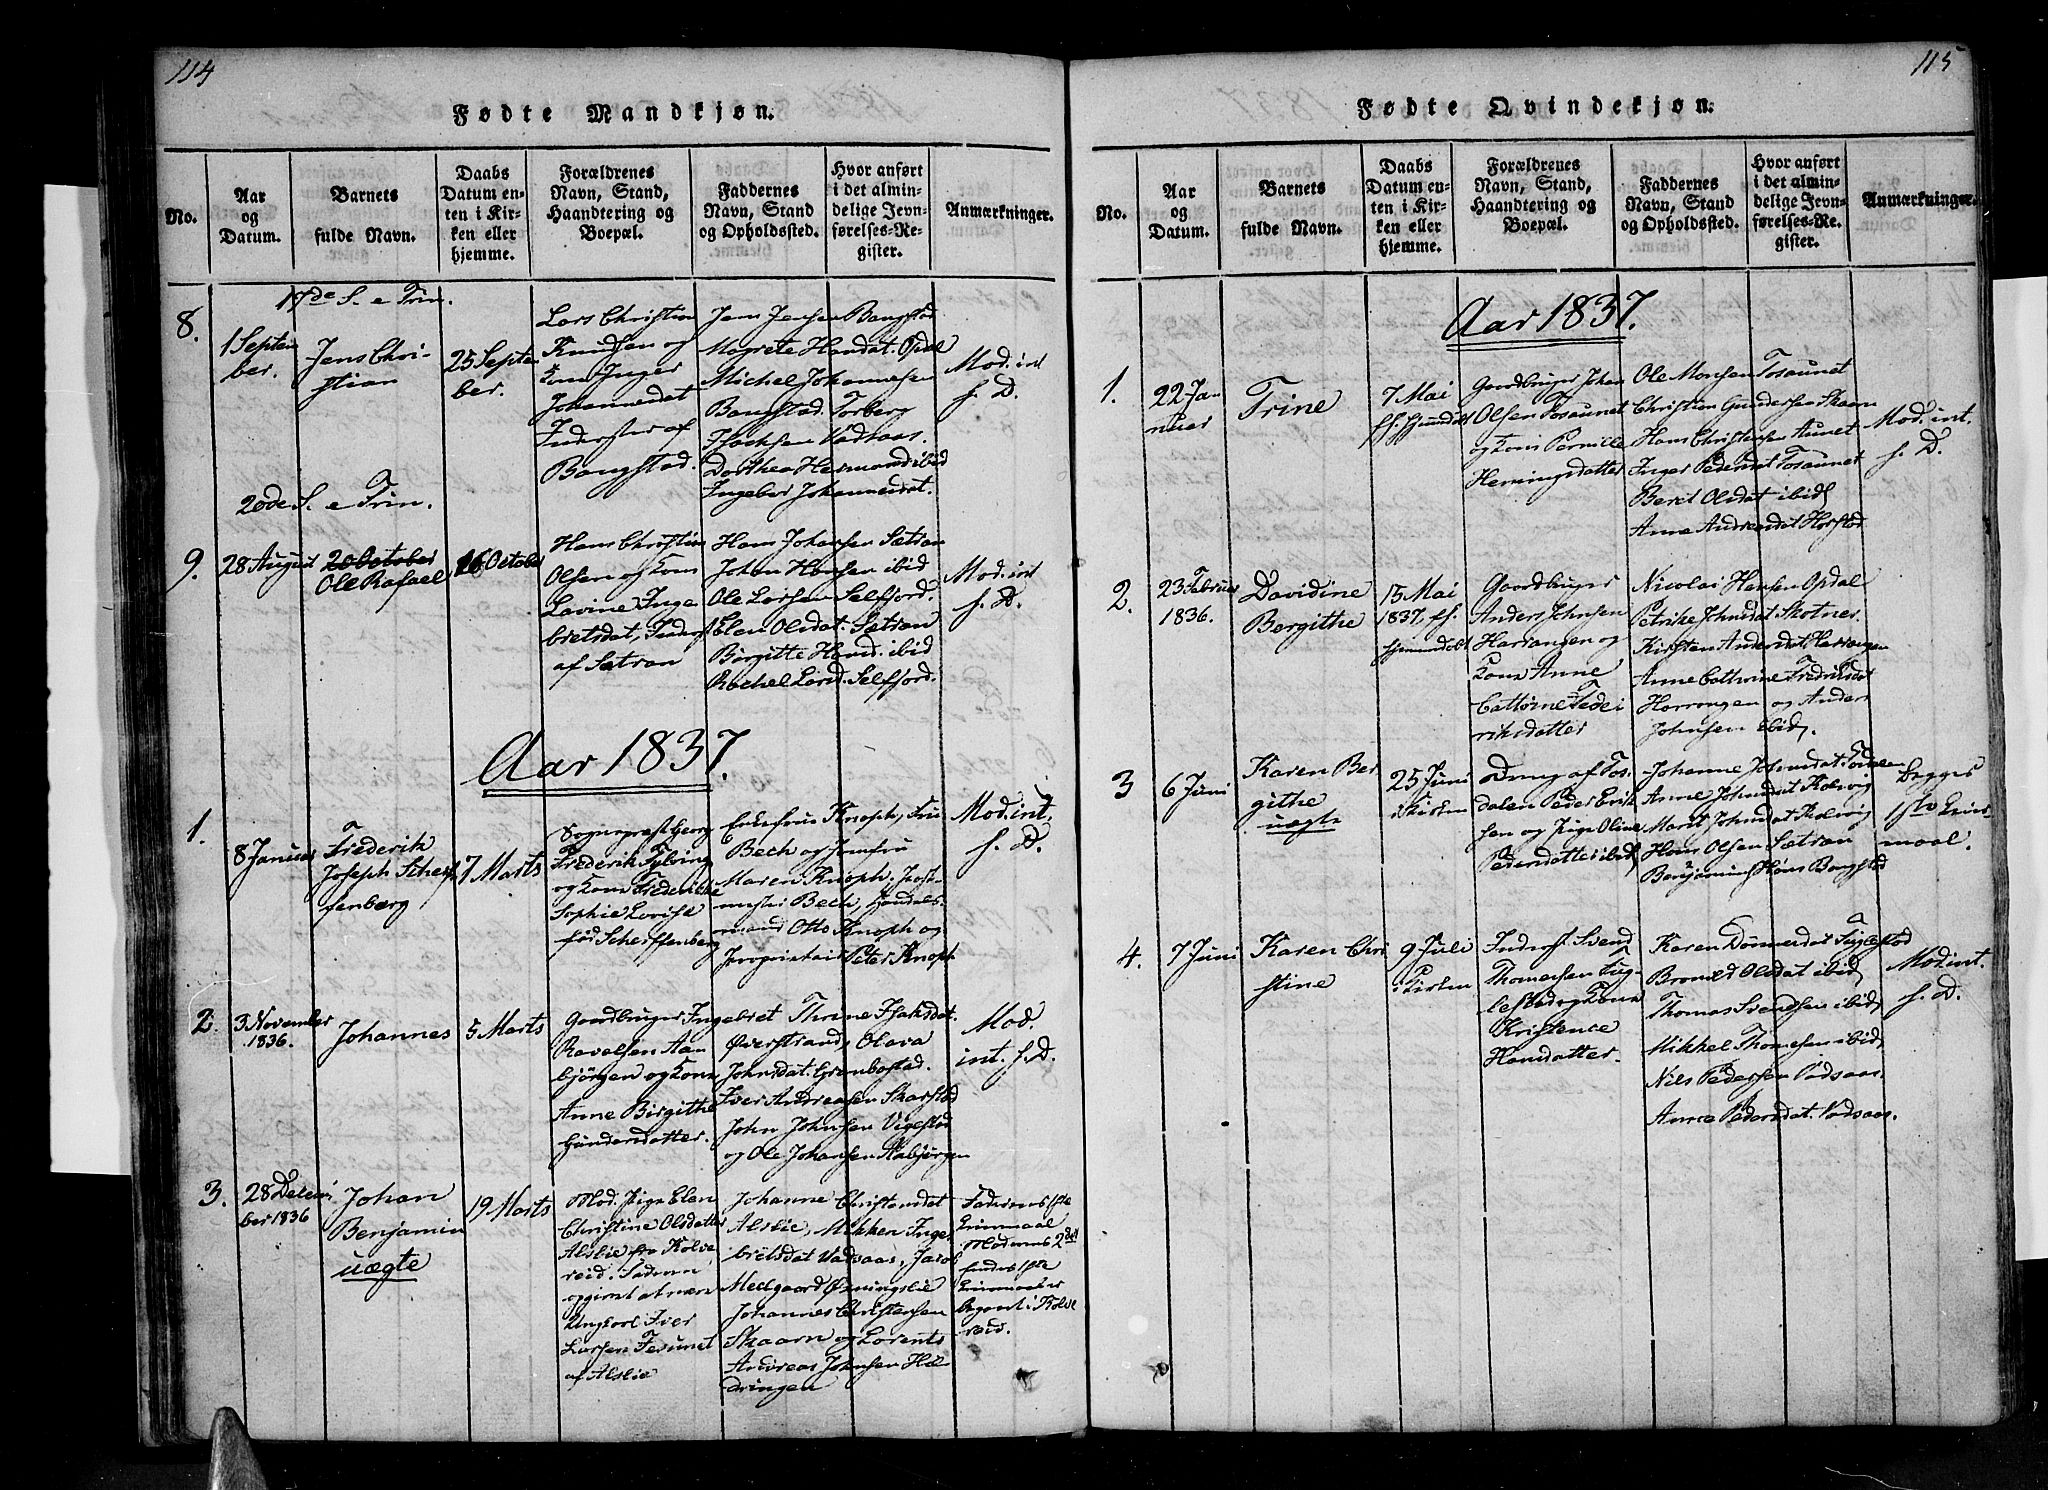 114
Fødte Mandkjøn.
No.
Aar
og
Datum.
Barnets
fulde Navn.
Daabs
Datum en-
ten i Kir-
ken eller
hjemme.
Forældrenes
Navn, Stand,
Haandtering og
Boepæl.
Faddernes
Navn, Stand
og Opholdssted.
Hvor anført
i det almin-
delige Jevn-
førelses-Re-
gister.
Anmærkninger.
17de S. e Trin.
8.
1 Septem
ber.
Jens Chri-
stian
25 Septe
ber.
Lars Christian
Knudsen og
Kone Inger
Johannesdat
Inderster af
Bangstad.
Jens Jensen Bangstad
Magrete Hansdat. Opdal
Michel Johannesen
Bangstad. Torberg
Isachsen Vadsaas.
Dorthea Hermansd ibid
Ingebor Johannesdat.
Mod. int
f. D.
20de S. e Trin.
9.
28 August
20 October
Ole Rafael
16 October
Hans Christian
Olsen og Kone
Lavine Inge
bretsdat, Inderst
af Sætran
Hans Johansen Sætran
Johan Hansen ibid
Ole Larsen Selfjord.
Elen Olsdat. Sætran
Birgitte Hansd. ibid
Rachel Larsd. Selfjord.
Mod. int
f. D.
Aar 1837.
1.
8 Januar
Frederik
Joseph Scherf
fenberg
7 Marts
Sognepræst Georg
Frederik
og Kone Frederikke
Sophie Lovise
fød Scherffenberg
Enkefrue Knoph, Frue
Bech og Jomfru
Maren Knoph. Post-
mester Bech, Handels-
mand Otto Knoph og
Proprietair Peter Knoph
Mod. int,
f. D.
2.
3 November
1836.
Johannes
5 Marts
Gaardbruger Ingebret
Ravelsen Aan
bjørgen og Kone
Anne Birgithe
Gundersdatter.
Thrine Isaksdat.
Øverstrand, Olava
Johnsdat. Grambostad.
Iver Andreasen Skarstad
John Johnsen Vigestad
og Ole Johansen Aabjørgen
Mod.
int. f. D.
3.
28 Decem
ber 1836
Johan
Benjamin
uægte
19 Marts
Mod. Pige Elen
Christine Olsdatter
Alslie fra Kolve
reid. Faderen
opgivet at være
Ungkarl Iver
Larsen Fesunet
af Alslie
Johanne Christensdat
Alslie, Mikken Inge
bretsdat Vadsaas, Jacob
Medgaard Øxningslie
Johannes Christensen
Skaarn og Lorents
Andreas Johnsen Hæ
dringen
Faderens 1ste
Leiermaal
Moderens 2det
hendes 1ste
Leiermaal er
begaaet i Kolve
reid.
115
Fødte Qvindekjøn.
No.
Aar
og
Datum.
Barnets
fulde Navn.
Daabs
Datum en-
ten i Kir-
ken eller
hjemme.
Forældrenes
Navn, Stand,
Haandtering og
Boepæl.
Faddernes
Navn, Stand
og Opholdssted.
Hvor anført
i det almin-
delige Jevn-
førelses-Re-
gister.
Anmærkninger.
Aar 1837.
1.
22 Ja-
nuar
Trine
7 Mai
Gaardbruger Johan
Olsen Tosaunet
og Kone Pernille
Henningsdatter
Ole Monsen Tosaunet
Christian Gundersen Skaarn
Hans Christensen Aunet
Inger Pedersdat Tosaunet
Beret Olsdat ibid
Anne Andreasdat Horstad
Mod. int.
f. D.
2.
23 Februar
1836.
Davidine
Bergithe
15 Mai
1837,
Gaardbruger
Anders Johnsen
Harrangen og
Kone Anne
Cathrine Frede
riksdatter
Nicolai Hansen Opdal
Petrike Johnsdat Skotner.
Kirsten Andersdat Harrangen
Anne Cathrine Fredriksdat
Horrongen og Anders
Johnsen ibid.
3
6 Juni
Karen Ber
githe
uægte
25 Juni
i Kirken
Dreng af Tos-
dalen Peder Erik
sen og Pige Oline
Pedersdatter ibid
Johanne Johnsdat
Anne Johnsdat Kolvig
Marit Johnsdat Kolvig
Hans Olsen Sætran
Benjamin Bangstad
Begges
1ste Leier-
maal.
4.
7 Juni
Karen Chri
stine
9 Juli
i Kirken
Inderst Svend
Thomassen Fug-
lestad og Kone
Kristence
Hansdatter.
Karen Fuglestad
Olsdat ibid
Thomas Svendsen ibid,
Mikkel Thomesen ibid,
Nils Pedersen Vadsaas.
Anne Pedersdat. Vadsaas.
Mod. int.
f. D.